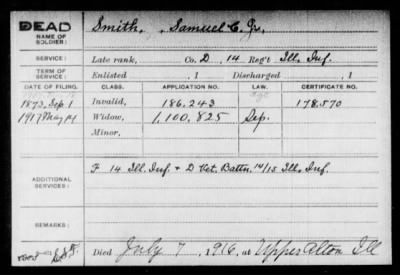 DEAD
NAME OF SOLDIER:
Smith, Samuel C. Jr.
SERVICE:
Late rank, Co. D, 14 Reg't Ill. Inf.
TERM OF SERVICE:
Enlisted , 1 Discharged , 1
DATE OF FILING. CLASS. APPLICATION NO. LAW. CERTIFICATE NO.
1873, Sep. 1 Invalid, 186.243 178.570
1917 May 14 Widow, 1,100,825 Dep.
Minor,
ADDITIONAL SERVICES:
F 14 Ill. Inf. + D Vet. Battn. 14/15 Ill. Inf.
REMARKS:
Died July 7, 1916, at Upper Alton Ill